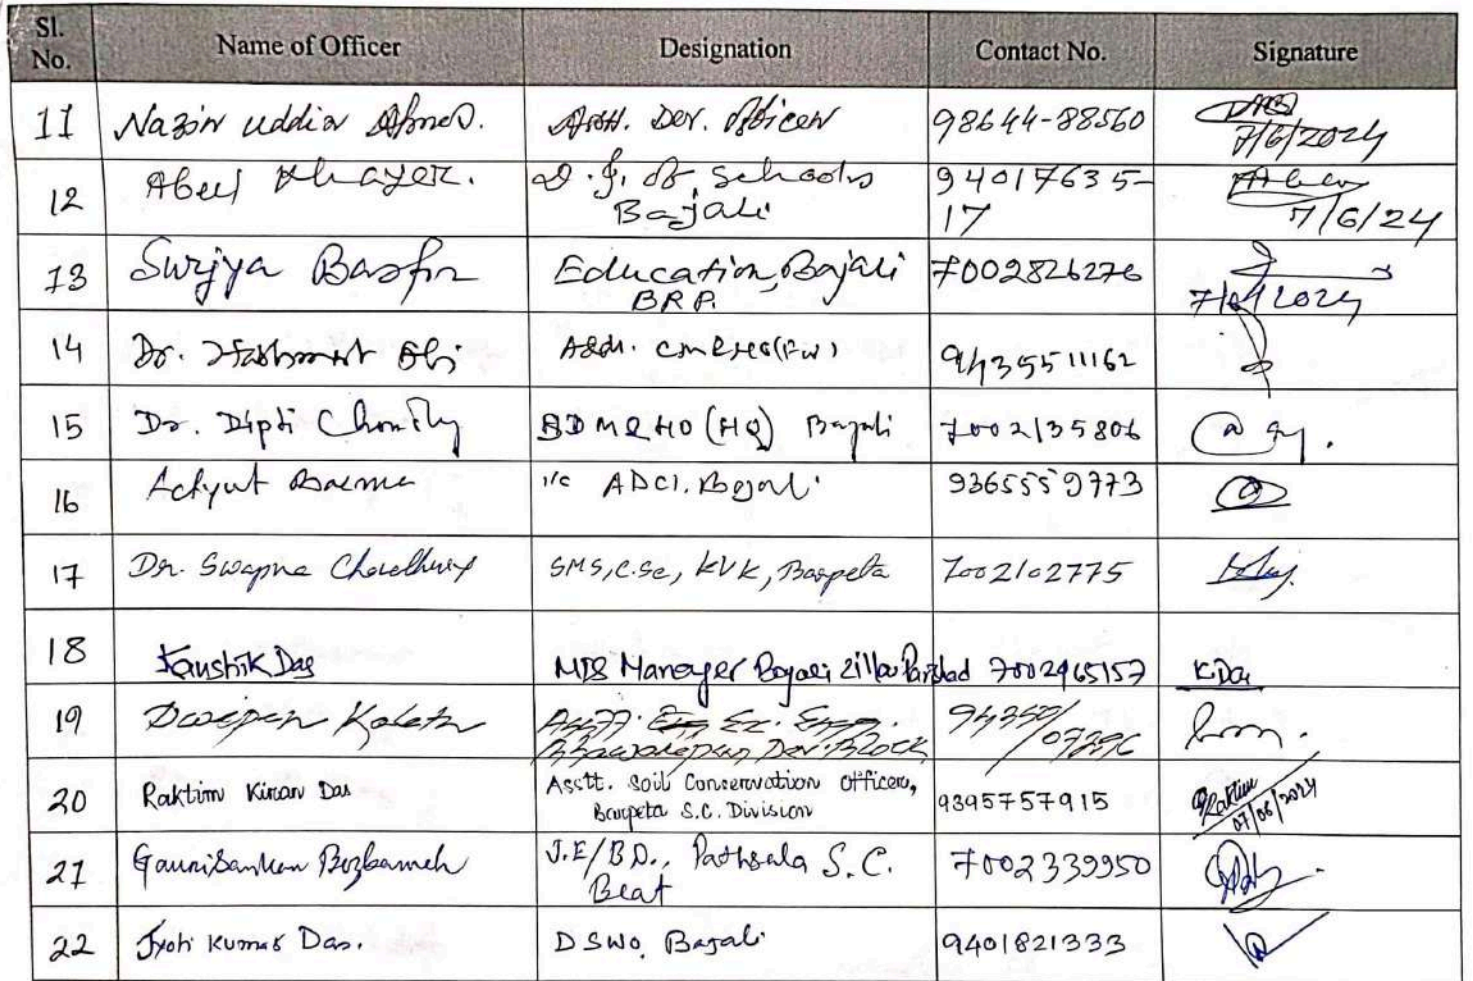 Sl. No. Name of Officer Designation Contact No. Signature
11 Nazim uddin Ahmed. Asstt. Dev. Officer 98644-88560
7/6/2024
12 Abul Khayer. D.I. of Schools 94017635-
Bajali 17 7/6/24
13 Surjya Basfor Education, Bajali 7002826276
BRP. 7/6/2024
14 Dr. Hashmat Ali Addl. CM&HO(FW) 9435511162
15 Dr. Dipti Chowdhury SDM&HO (HQ) Bajali 7002135806
16 Achyut Barma i/c ADCI, Bajali 9365559773
17 Dr. Swapna Choudhury SMS, C.Sc, KVK, Barpeta 7002102775
18 Kaushik Das MIS Manager Bajali Zilla Parishad 7002965157 K.Das
19 Dwipen Kalita Asstt. Ex. Engg. 94350/
Bhawanipur Dev. Block 07296
20 Raktim Kiran Das Asstt. Soil Conservation Officer, 9395757915 Raktim
Barpeta S.C. Division 07/06/2024
21 Gaurisankar Bozbarueh J.E/BO., Pathsala S.C. 7002339950
Beat
22 Jyoti Kumar Das. DSWO, Bajali 9401821333